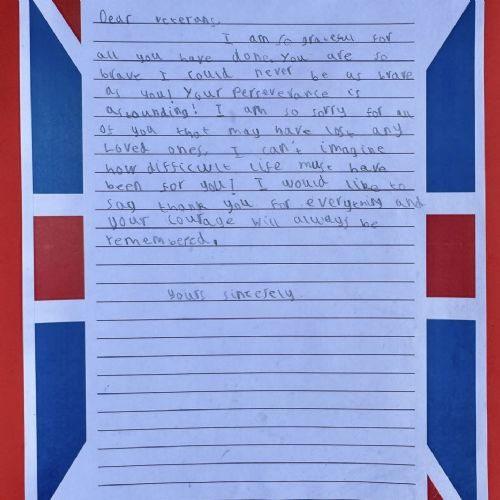 Dear veterans,
I am so grateful for
all you have done. You are so
brave I could never be as brave
as you! Your Perseverance is
astounding! I am so sorry for all
of you that may have lost any
Loved ones. I can't imagine
how difficult life must have
been for you! I would like to
say thank you for everything and
your courage will always be
remembered.
yours sincerely